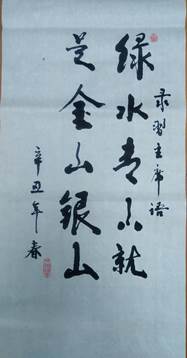 绿水青山就
是金山银山
录习主席语
辛丑年春